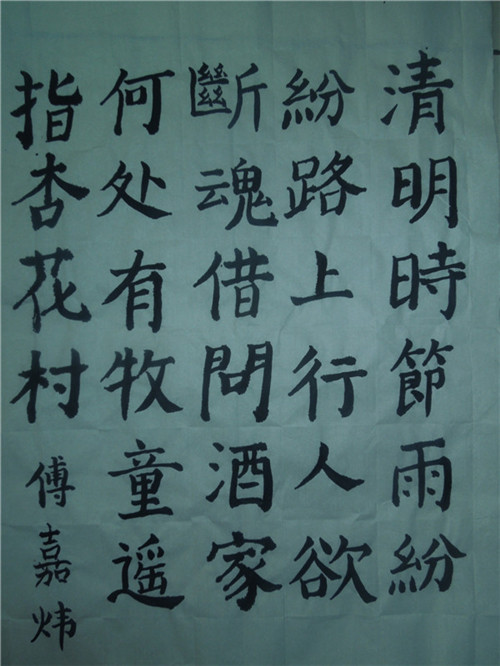 清明時節雨紛
紛路上行人欲
斷魂借問酒家
何处有牧童遥
指杏花村
傅嘉炜